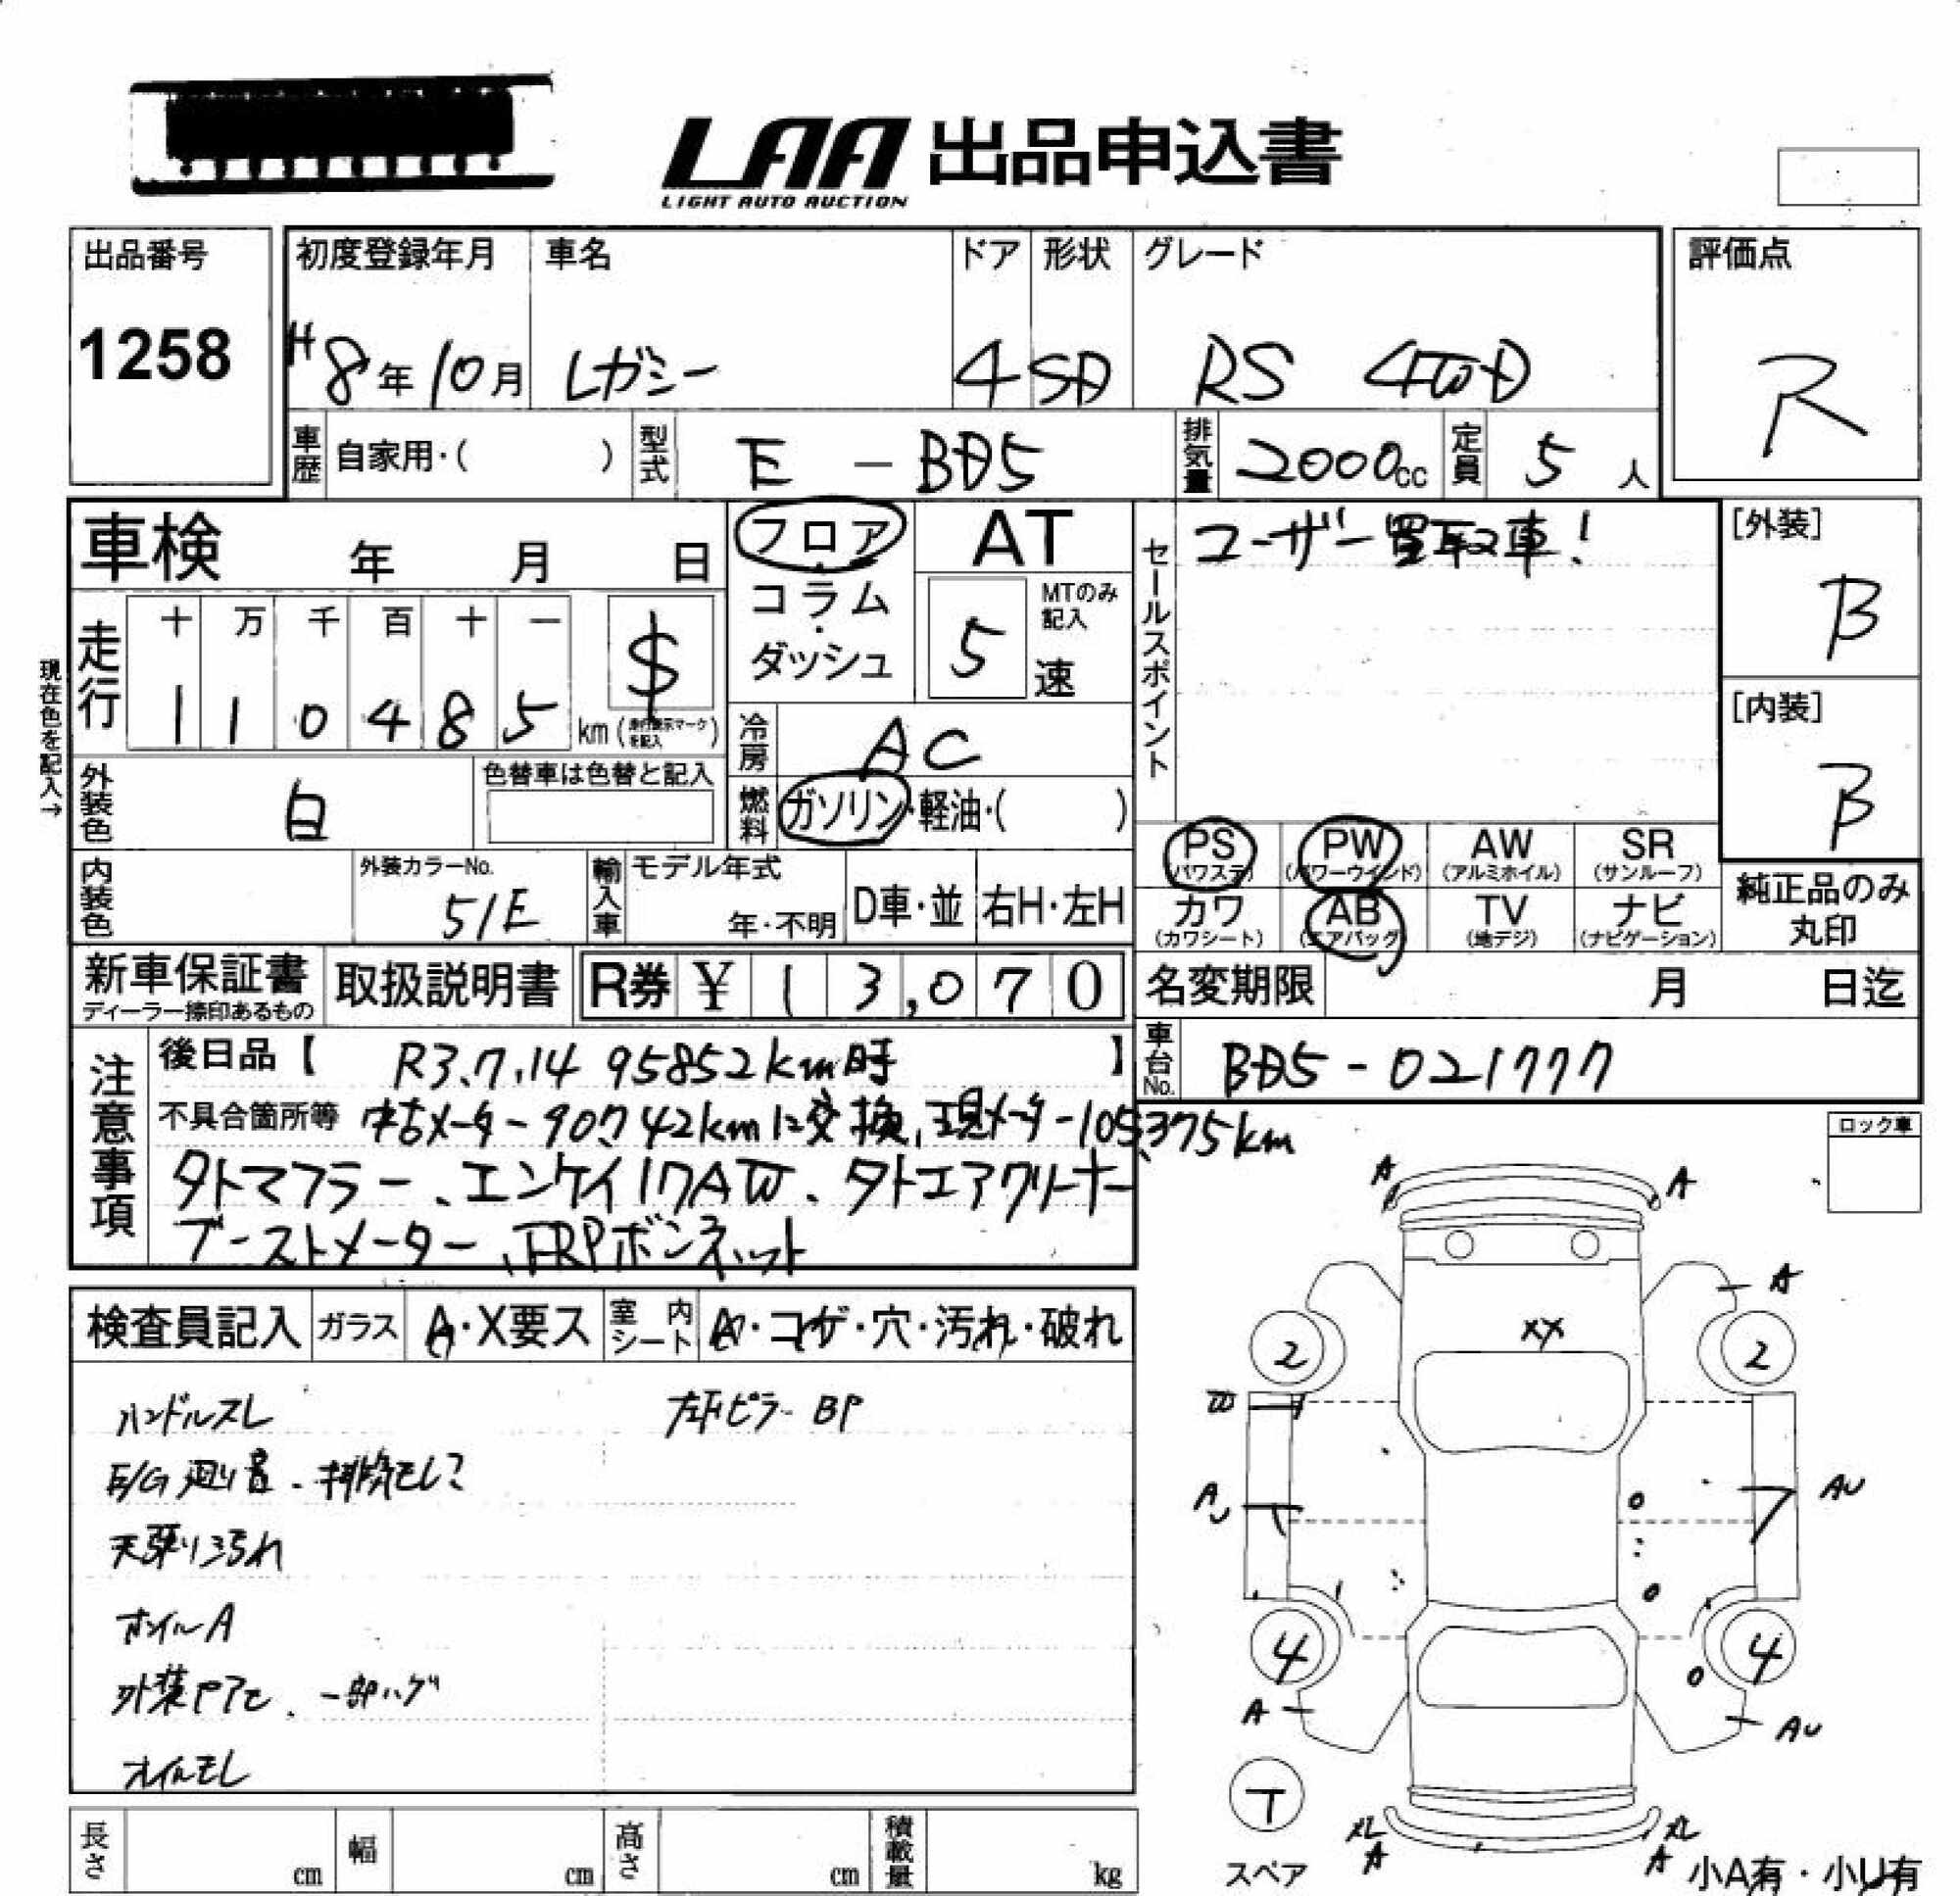 LAA 出品申込書
LIGHT AUTO AUCTION
出品番号 初度登録年月 車名 ドア 形状 グレード 評価点
1258 H8年10月 レガシー 4 SD RS 4WD R
車歴 自家用・( ) 型式 E - BD5 排気量 2000cc 定員 5人
車検 年 月 日 フロア AT セールスポイント ユーザー買取車! [外装]
コラム・ MTのみ記入 B
ダッシュ 5 速
現在色を記入→
走行 十 万 千 百 十 一 $
1 1 0 4 8 5 km (走行表示マークを記入) [内装]
冷房 AC B
外装色 白 色替車は色替と記入 燃料 ガソリン・軽油・( )
PS PW AW SR
(パワステ) (パワーウインド) (アルミホイル) (サンルーフ)
内装色 外装カラーNo. 51E 輸入車 モデル年式 年・不明 D車・並 右H・左H
カワ AB TV ナビ 純正品のみ
(カワシート) (エアバッグ) (地デジ) (ナビゲーション) 丸印
新車保証書 取扱説明書 R券 ¥ 1 3,0 7 0 名変期限 月 日迄
ディーラー捺印あるもの
注意事項 後日品【 R3.7.14 95852km時 】 車台No. BD5-021777
不具合箇所等 中古メーター90742kmに交換、現メーター105,375km
タトマフラー、エンケイ17AW、タトエアクリーナー
ブーストメーター、FRPボンネット
ロック車
A A
A
検査員記入 ガラス A・X要ス 室内シート A・コゲ・穴・汚れ・破れ
XX
2 2
ハンドルスレ 左Fピラー BP
W
E/G廻り音、排気モレ?
AU AU
天張り汚れ
ホイルA 4 4
外装ヤケ、一部ハゲ
A AU
オイルモレ
T
スペア
A A
小A有・小U有
長さ cm 幅 cm 高さ cm 積載量 kg